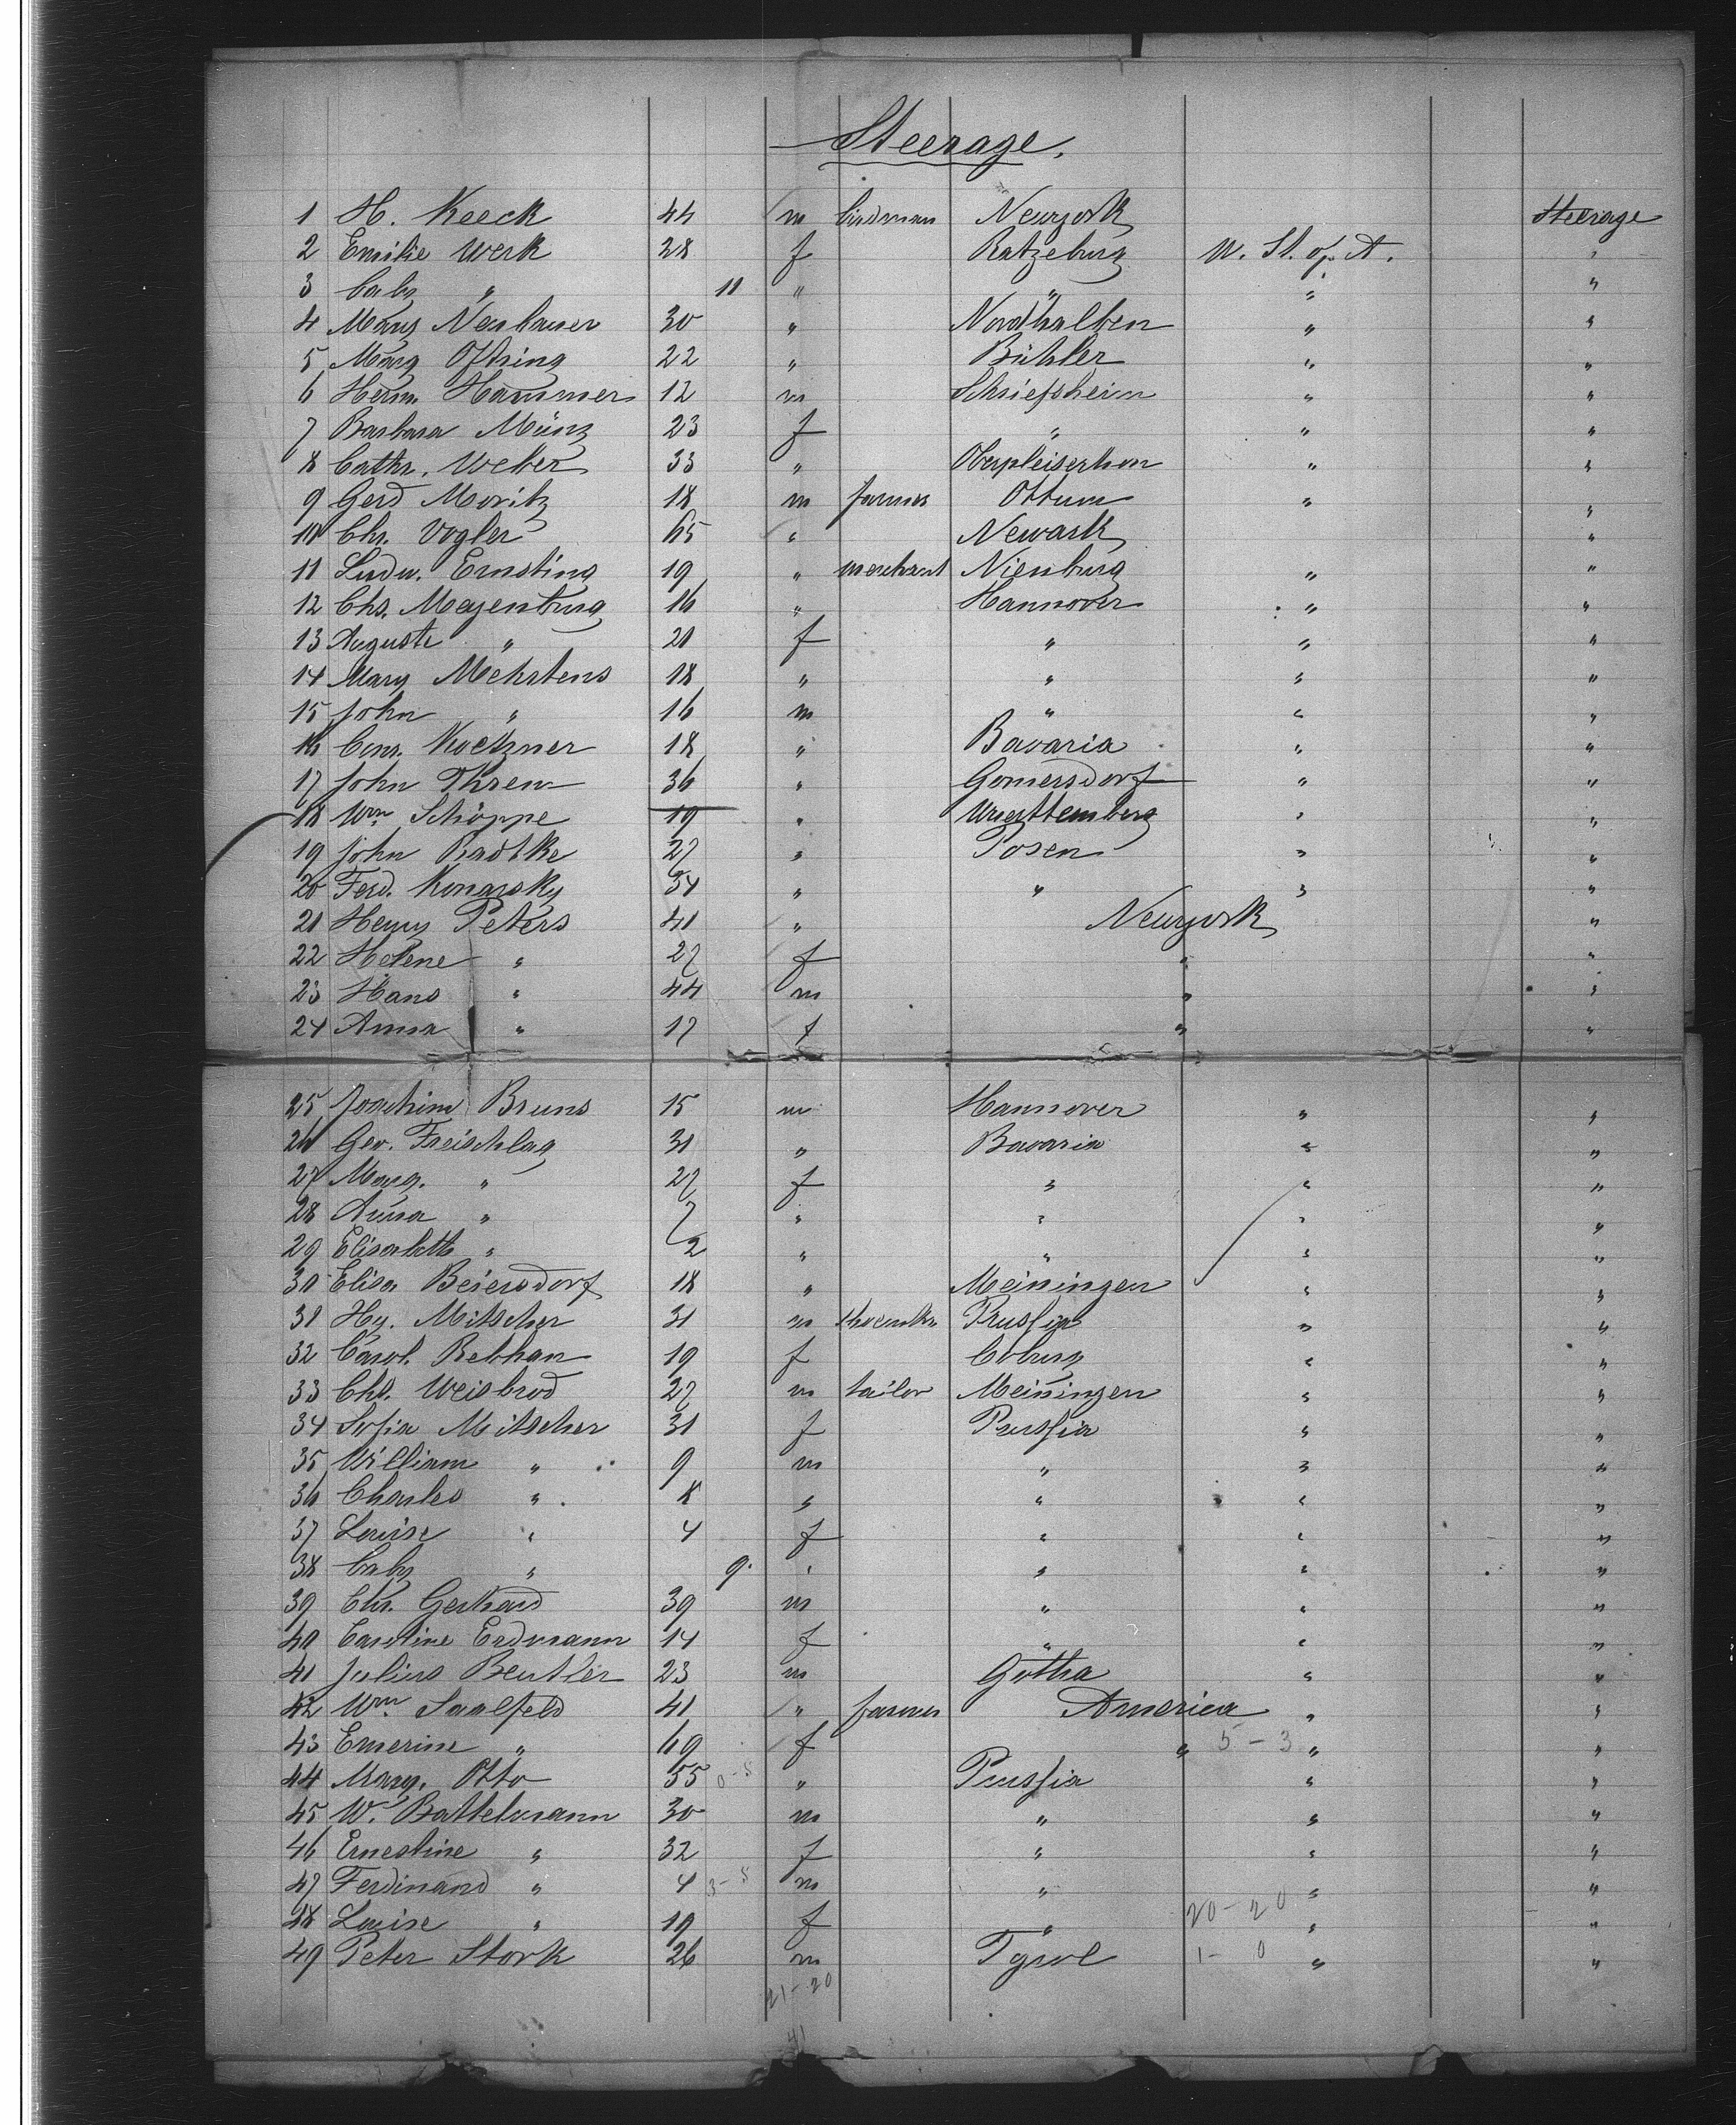 Steerage.
1 H. Keeck 44 m birdman Newyork Steerage
2 Emilie Werk 28 f Ratzeburg U. St. of A. "
3 baby " 11 " " " "
4 Mary Neubauer 30 " Nordhalben " "
5 Marg Oftring 22 " Bühler " "
6 Herm. Hammer 12 m Schriesheim " "
7 Barbara Münz 23 f " " "
8 Cathr. Weber 33 " " "
9 Gerd Moritz 18 m farmer Ottum " "
10 Chr. Vogler 65 " Newark "
11 Ludw. Ernsting 19 " merchant Nienburg " "
12 Chs. Meyenburg 16 " Hannover " "
13 Auguste " 21 f " " "
14 Mary Mehrtens 18 " " " "
15 John " 16 m " " "
16 Conr. Koetzner 18 " Bavaria " "
17 John Threm 36 " Gomersdorf " "
18 Wm. Schöppe 19 " Wuerttemberg " "
19 John Radtke 27 " Posen " "
20 Ferd. Konarsky 34 " " " "
21 Henry Peters 41 " Newyork "
22 Helene " 27 f " "
23 Hans " 44 m " "
24 Anna " 17 f " "
25 Joachim Bruns 15 m Hannover " "
26 Geo. Freischlag 31 " Bavaria " "
27 Marg. " 27 f " " "
28 Anna " 7 " " " "
29 Elisabeth " 2 " " " "
30 Elisa Beiersdorf 18 " Meiningen " "
31 Hy. Mitscher 31 m Prussia " "
32 Carol. Rebhan 19 f Coburg " "
33 Chs. Weisbrod 27 m tailor Meiningen " "
34 Sofia Mitscher 31 f Prussia " "
35 William " 9 m " " "
36 Charles " 8 " " " "
37 Louise " 4 f " " "
38 baby " 9. " " " "
39 Chr. Gerhard 39 m " " "
40 Caroline Erdmann 14 f " " "
41 Julius Beutler 23 m Gotha " "
42 Wm. Saalfeld 41 " farmer America " "
43 Emerine " 69 f " 5 - 3 " "
44 Marg. Otto 55 0-5 " Prussia " "
45 W. Battelmann 30 m " " "
46 Ernestine " 32 f " " "
47 Ferdinand " 4 3-5 m " " "
48 Louise " 19 f " 20-20 " "
49 Peter Stork 26 m Tyrol 1-0 " "
21-20
41